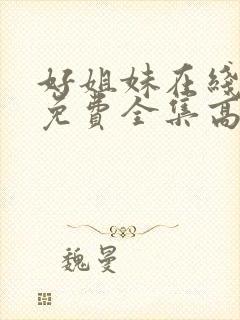 好姐妹在线
免费全集高
魏曼